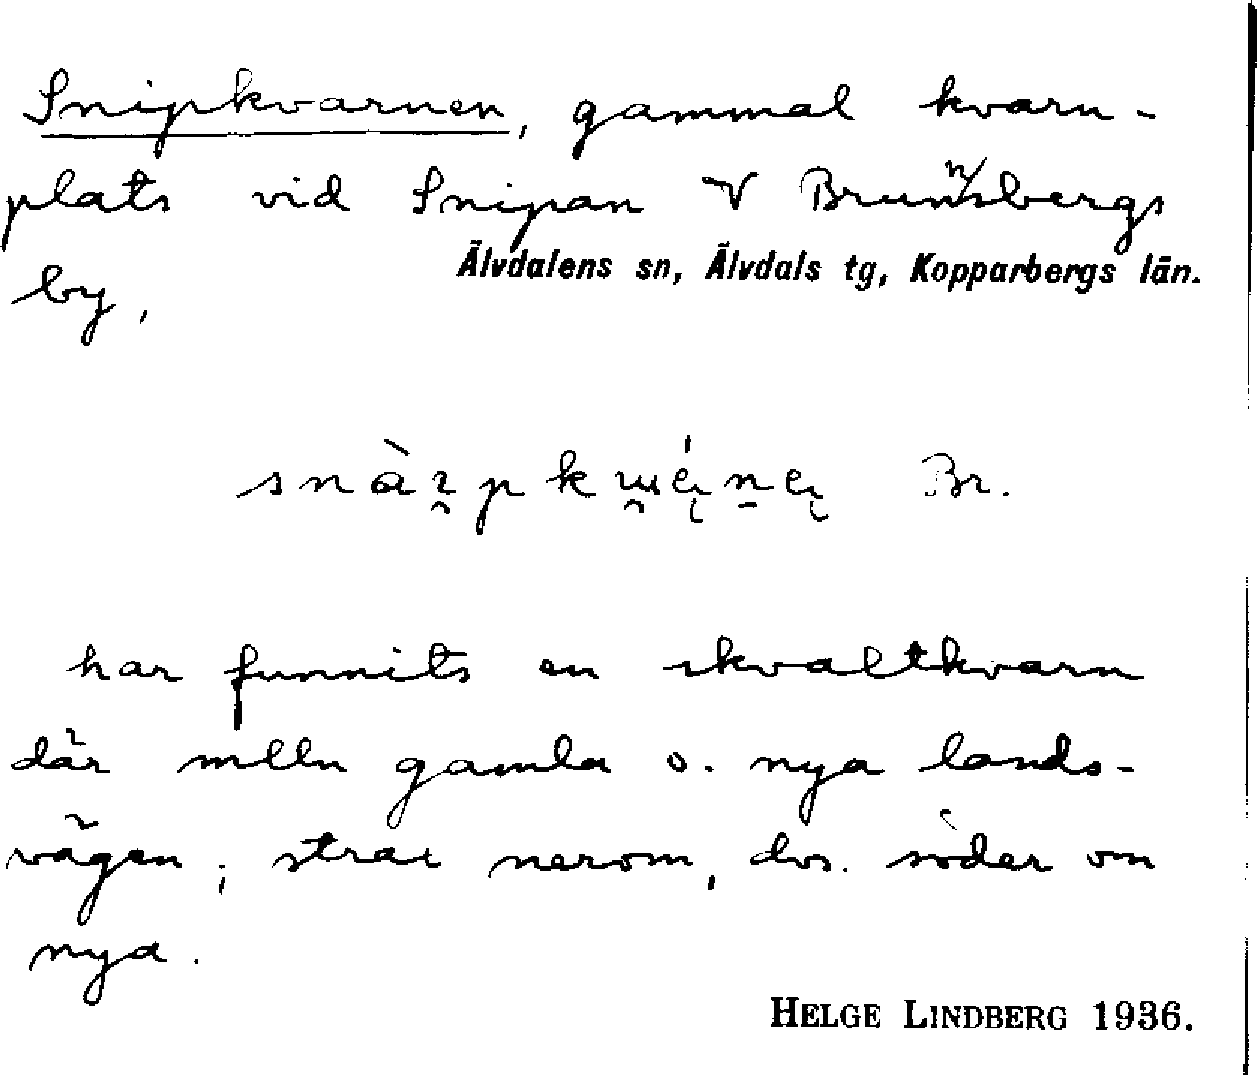 Snipkvarnen, gammal kvarn-
plats vid Snipan V Brunnsbergs
by,
Älvdalens sn, Älvdals tg, Kopparbergs län.
Br.
har funnits en skvaltkvarn
där mlln gamla o. nya lands-
vägen; strax nerom, dvs. söder om
nya.
HELGE LINDBERG 1936.